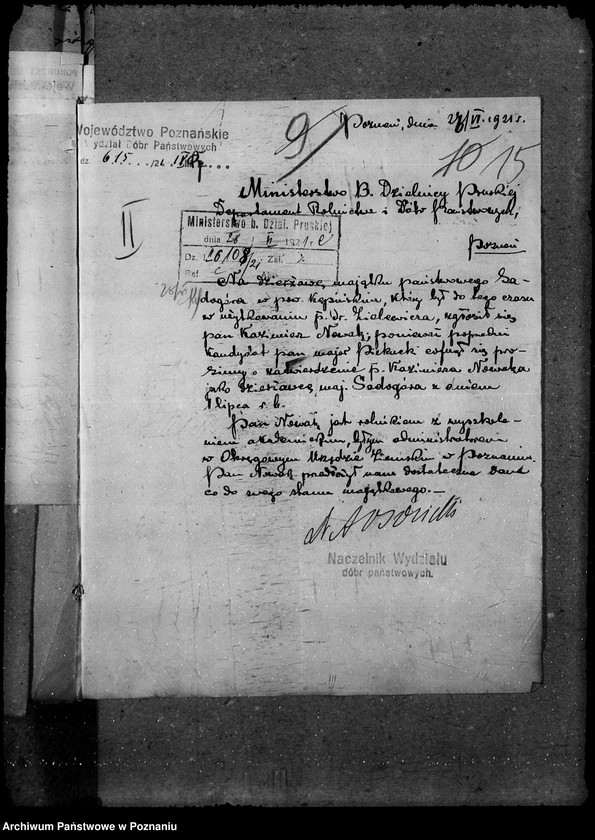 Województwo Poznańskie
Wydział Dóbr Państwowych
dz. 615
9
Poznań, dnia 27/VI. 1921 r.
10 15
II
Ministerstwo B. Dzielnicy Pruskiej
Departament Rolnictwa i Dóbr Państwowych,
Poznań
Ministerstwo b. Dziel. Pruskiej
dnia 28/VI 1921 r
Dz.
Zał.
Ref.
Na dzierżawę majątku państwowego Sa-
dogóra w pow. Kępińskim, który był do tego czasu
w użytkowaniu p. Dr. zgłosił się
pan Kazimierz Nowak; ponieważ poprzedni
kandydat pan major cofnął się pro-
simy o zatwierdzenie p. Kazimierza Nowaka
jako dzierżawcę maj. Sadogóra z dniem
1 lipca r. b.
Pan Nowak jest rolnikiem z wyszkole-
niem akademickim, byłym administratorem
w Okręgowym Urzędzie Ziemskim w Poznaniu.
Pan Nowak przedłożył nam dostateczne
co do swego stanu majątkowego. —
Naczelnik Wydziału
dóbr państwowych.
Archiwum Państwowe w Poznaniu